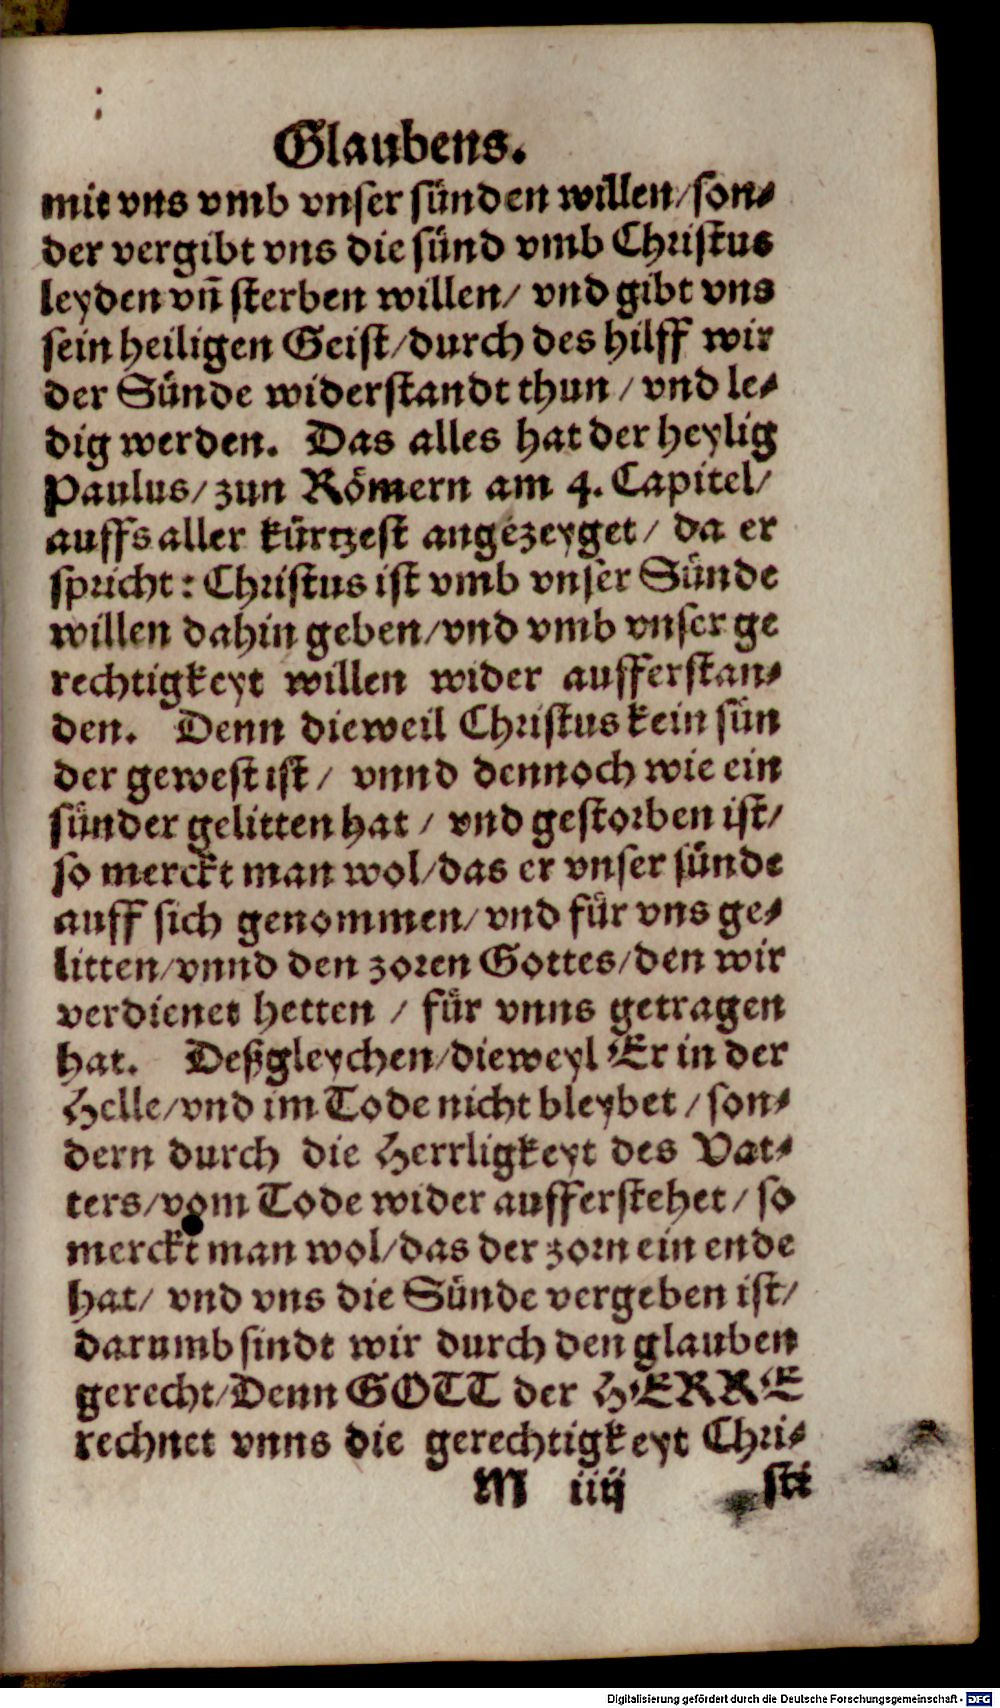 Glaubens.
mit vns vmb vnser sünden willen/ son-
der vergibt vns die sünd vmb Christus
leyden vñ sterben willen/ vnd gibt vns
sein heiligen Geist/ durch des hilff wir
der Sünde widerstandt thun / vnd le-
dig werden. Das alles hat der heylig
Paulus/ zun Römern am 4. Capitel/
auffs aller kürtzest angezeyget/ da er
spricht: Christus ist vmb vnser Sünde
willen dahin geben/ vnd vmb vnser ge
rechtigkeyt willen wider aufferstan-
den. Denn dieweil Christus kein sün
der gewest ist/ vnnd dennoch wie ein
sünder gelitten hat / vnd gestorben ist/
so merckt man wol/ das er vnser sünde
auff sich genommen/ vnd für vns ge-
litten/ vnnd den zoren Gottes/ den wir
verdienet hetten / für vnns getragen
hat. Deßgleychen/ dieweyl Er in der
Helle/ vnd im Tode nicht bleybet / son-
dern durch die Herrligkeyt des Vat-
ters/ vom Tode wider aufferstehet / so
merckt man wol/ das der zorn ein ende
hat/ vnd vns die Sünde vergeben ist/
darumb sindt wir durch den glauben
gerecht/ Denn GOTT der HERRE
rechnet vnns die gerechtigkeyt Chri-
M iiij sti
Digitalisierung gefördert durch die Deutsche Forschungsgemeinschaft - DFG